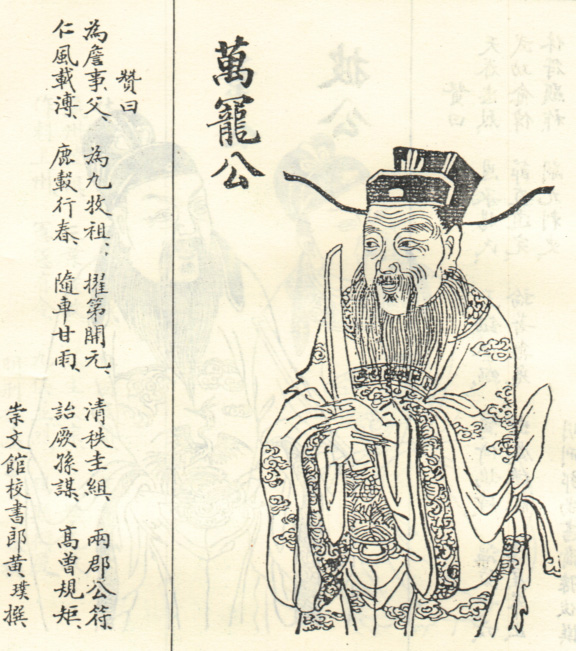 萬寵公
贊曰
為詹事父、為九牧祖;擢第開元、清秩圭組、兩郡公符、
仁風載溥、鹿轂行春、隨車甘雨、詒厥孫謀、高曾規矩、
崇文館校書郎黃璞撰